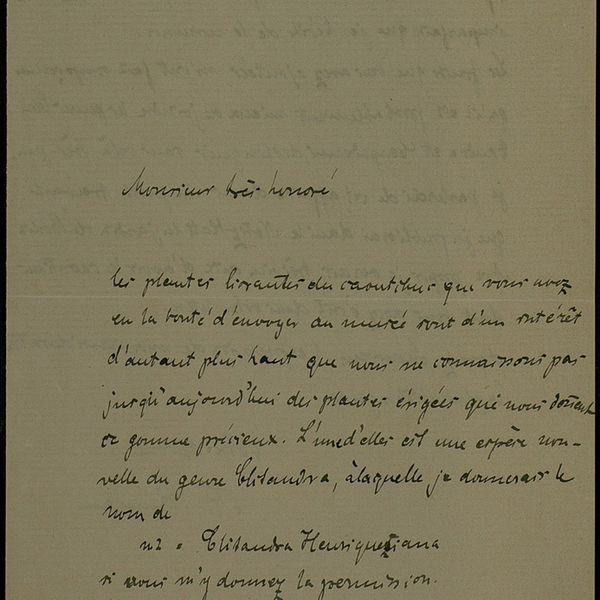 Monsieur très honoré
les plantes livrantes du caoutchuc que vous avez
eu la bonté d'envoyer au museé sont d'un intérêt
d'autant plus haut que nous ne connaissons pas
jusqu'aujourd'hui des plantes érigées qui nous donnent
ce gomme précieux. L'une d'elles est une espèce nou-
velle du genre Clitandra, à laquelle je donnerais le
nom de
n2 = Clitandra Henriqueziana
si vous m'y donnez la permission.